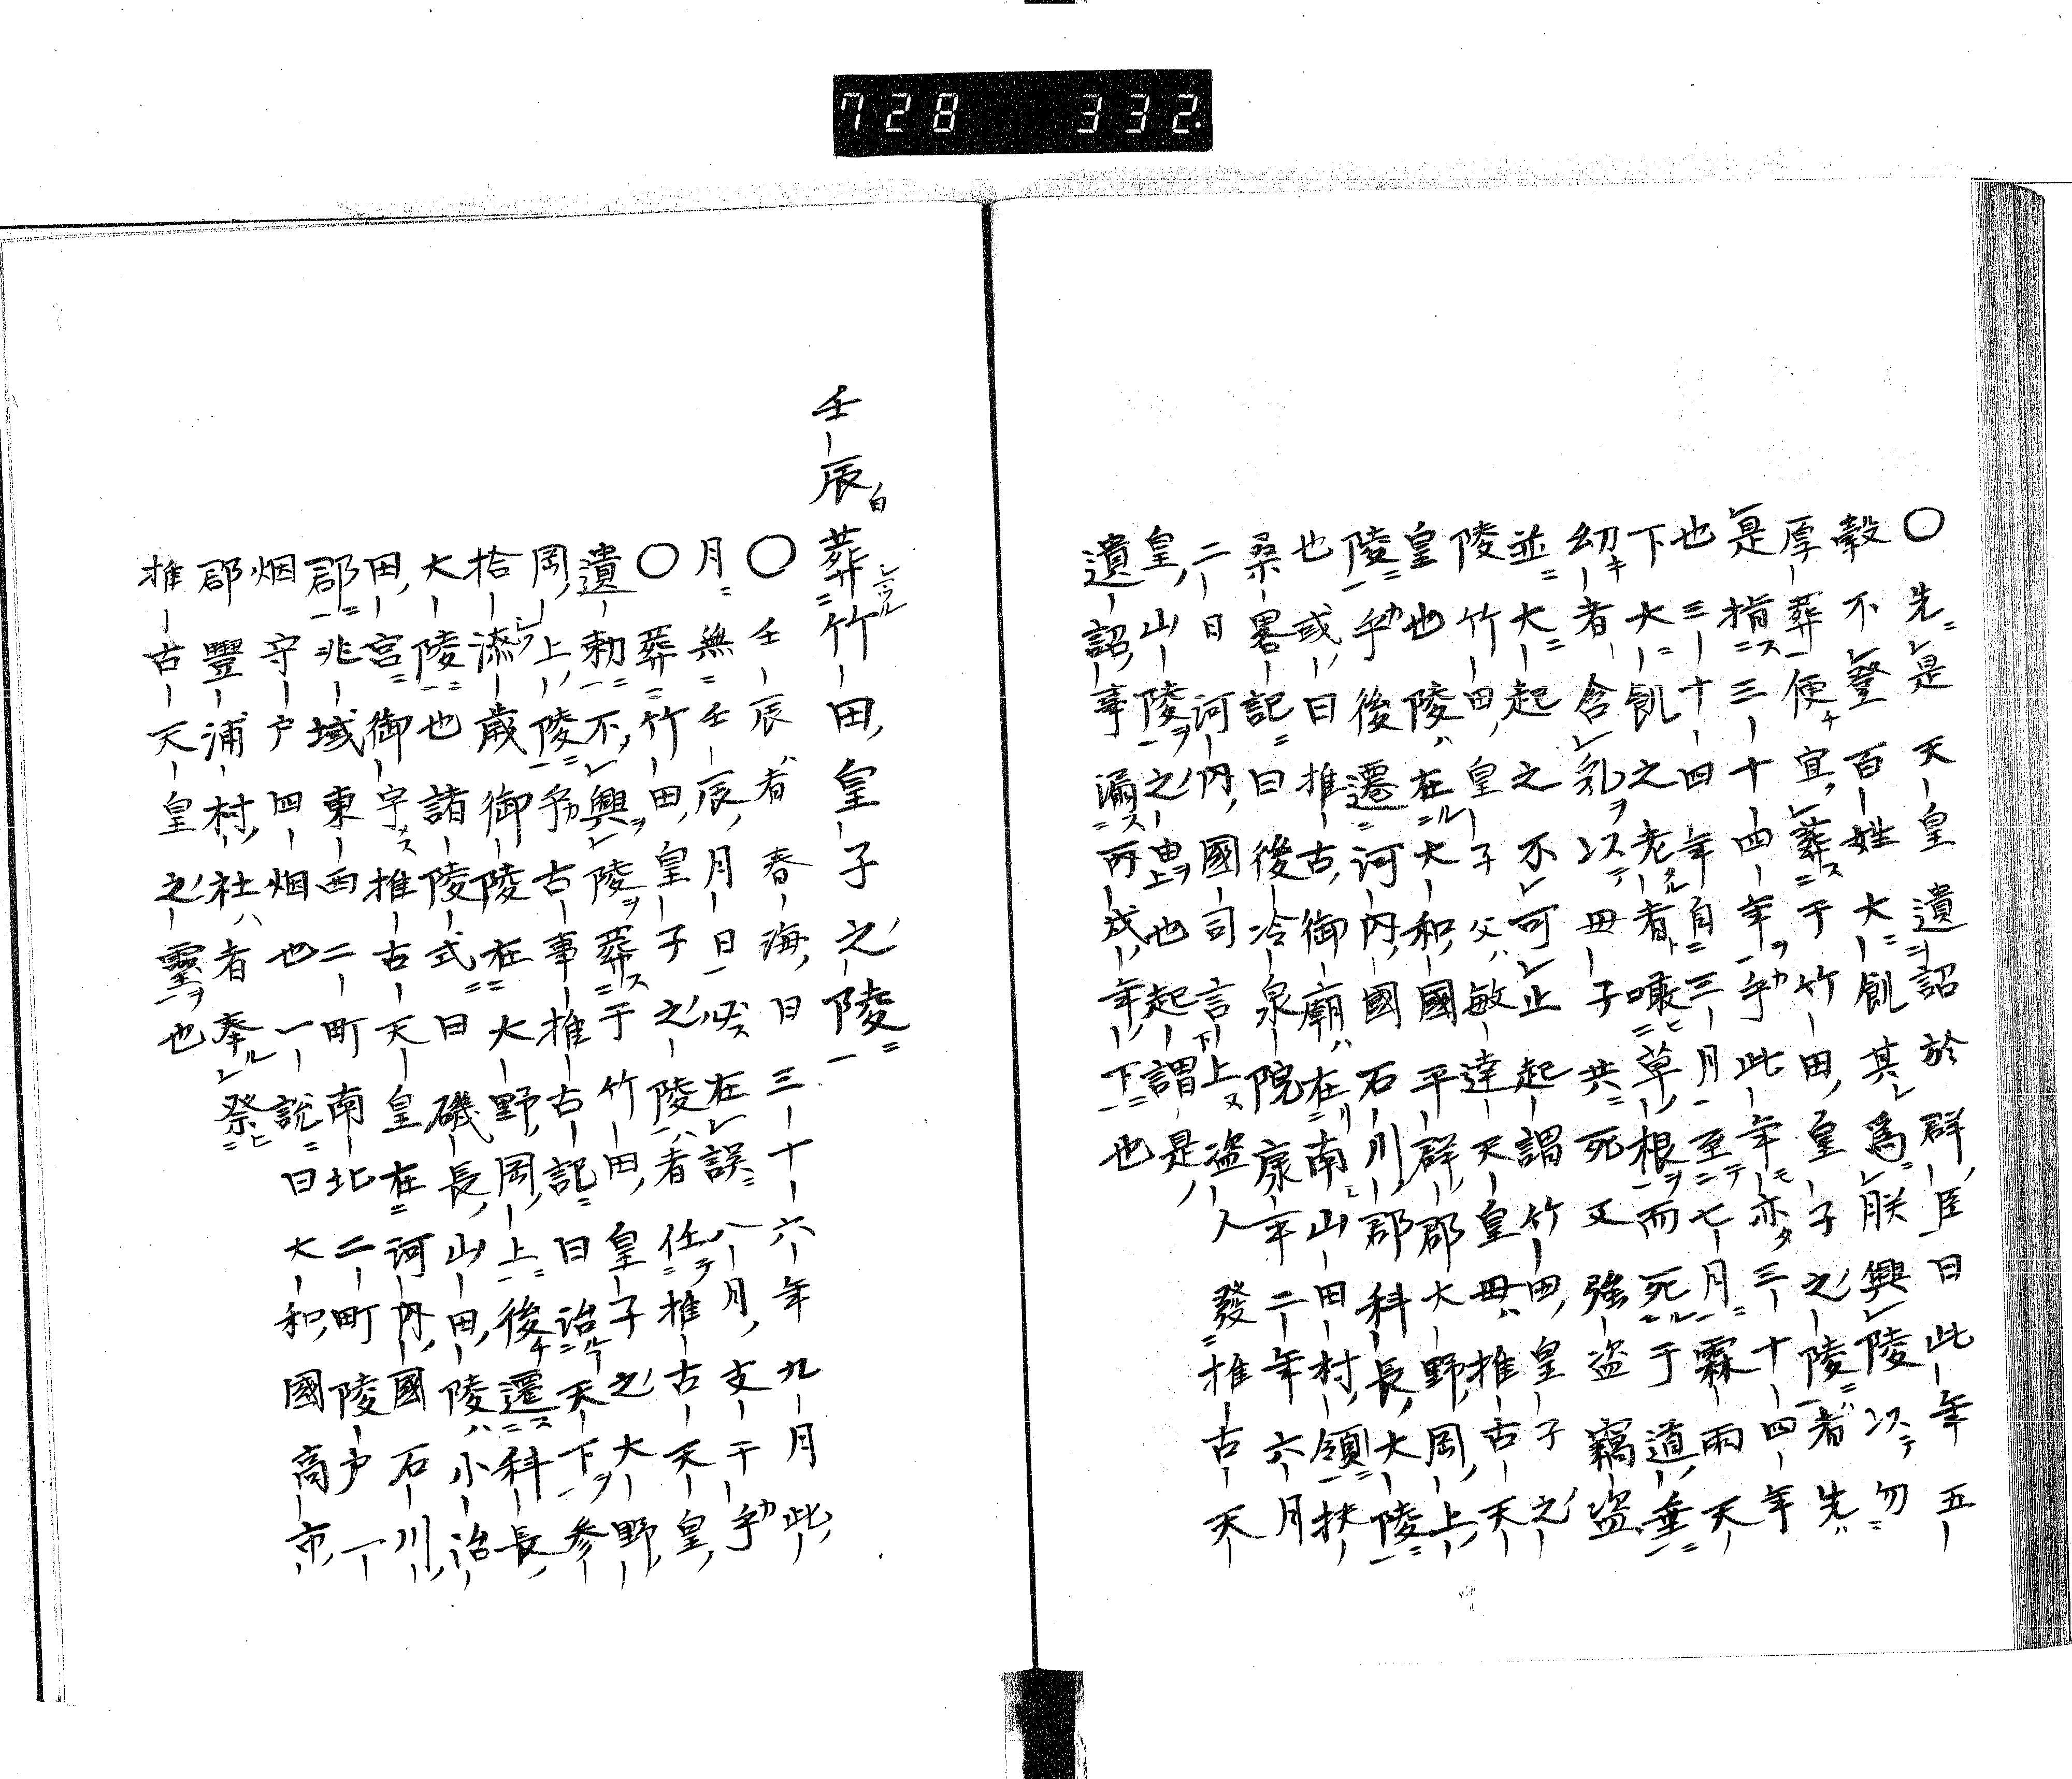 728 332
〇先是 天皇遺詔於群臣曰此年五
穀不登百姓大飢其爲朕興陵以勿
厚葬便宜葬于竹田皇子之陵者先
是指三十四年乎此年亦三十四年
也三十四年自三月至七月霖雨天
下大飢之老者噉草根而死于道垂
幼者含乳以母子共死又強盗竊盗
並大起之不可止起謂竹田皇子之
陵竹田皇子父敏達天皇母推古天
皇也陵在大和國平群郡大野岡上
陵乎後遷河内國石川郡科長大陵
也或曰推古御廟在南山田村領扶
桑畧記曰後冷泉院康平二年六月
二日河内國司言上盗人發推古天
皇山陵之由也起謂是
遺詔事漏所戌年下也
壬辰葬竹田皇子之陵
〇壬辰者春海曰三十六年九月此
月無壬辰月日必在誤八月支干乎
〇葬竹田皇子之陵者任推古天皇
遺勅不興陵葬于竹田皇子之大野
岡上陵予古事推古記曰治天下参
拾漆歳御陵在大野岡上後遷科長
大陵也諸陵式曰磯長山田陵小治
田宮御宇推古天皇在河内國石川
郡兆域東西二町南北二町陵戸一
烟守戸四烟也一説曰大和國高市
郡豐浦村社者奉祭
推古天皇之靈也